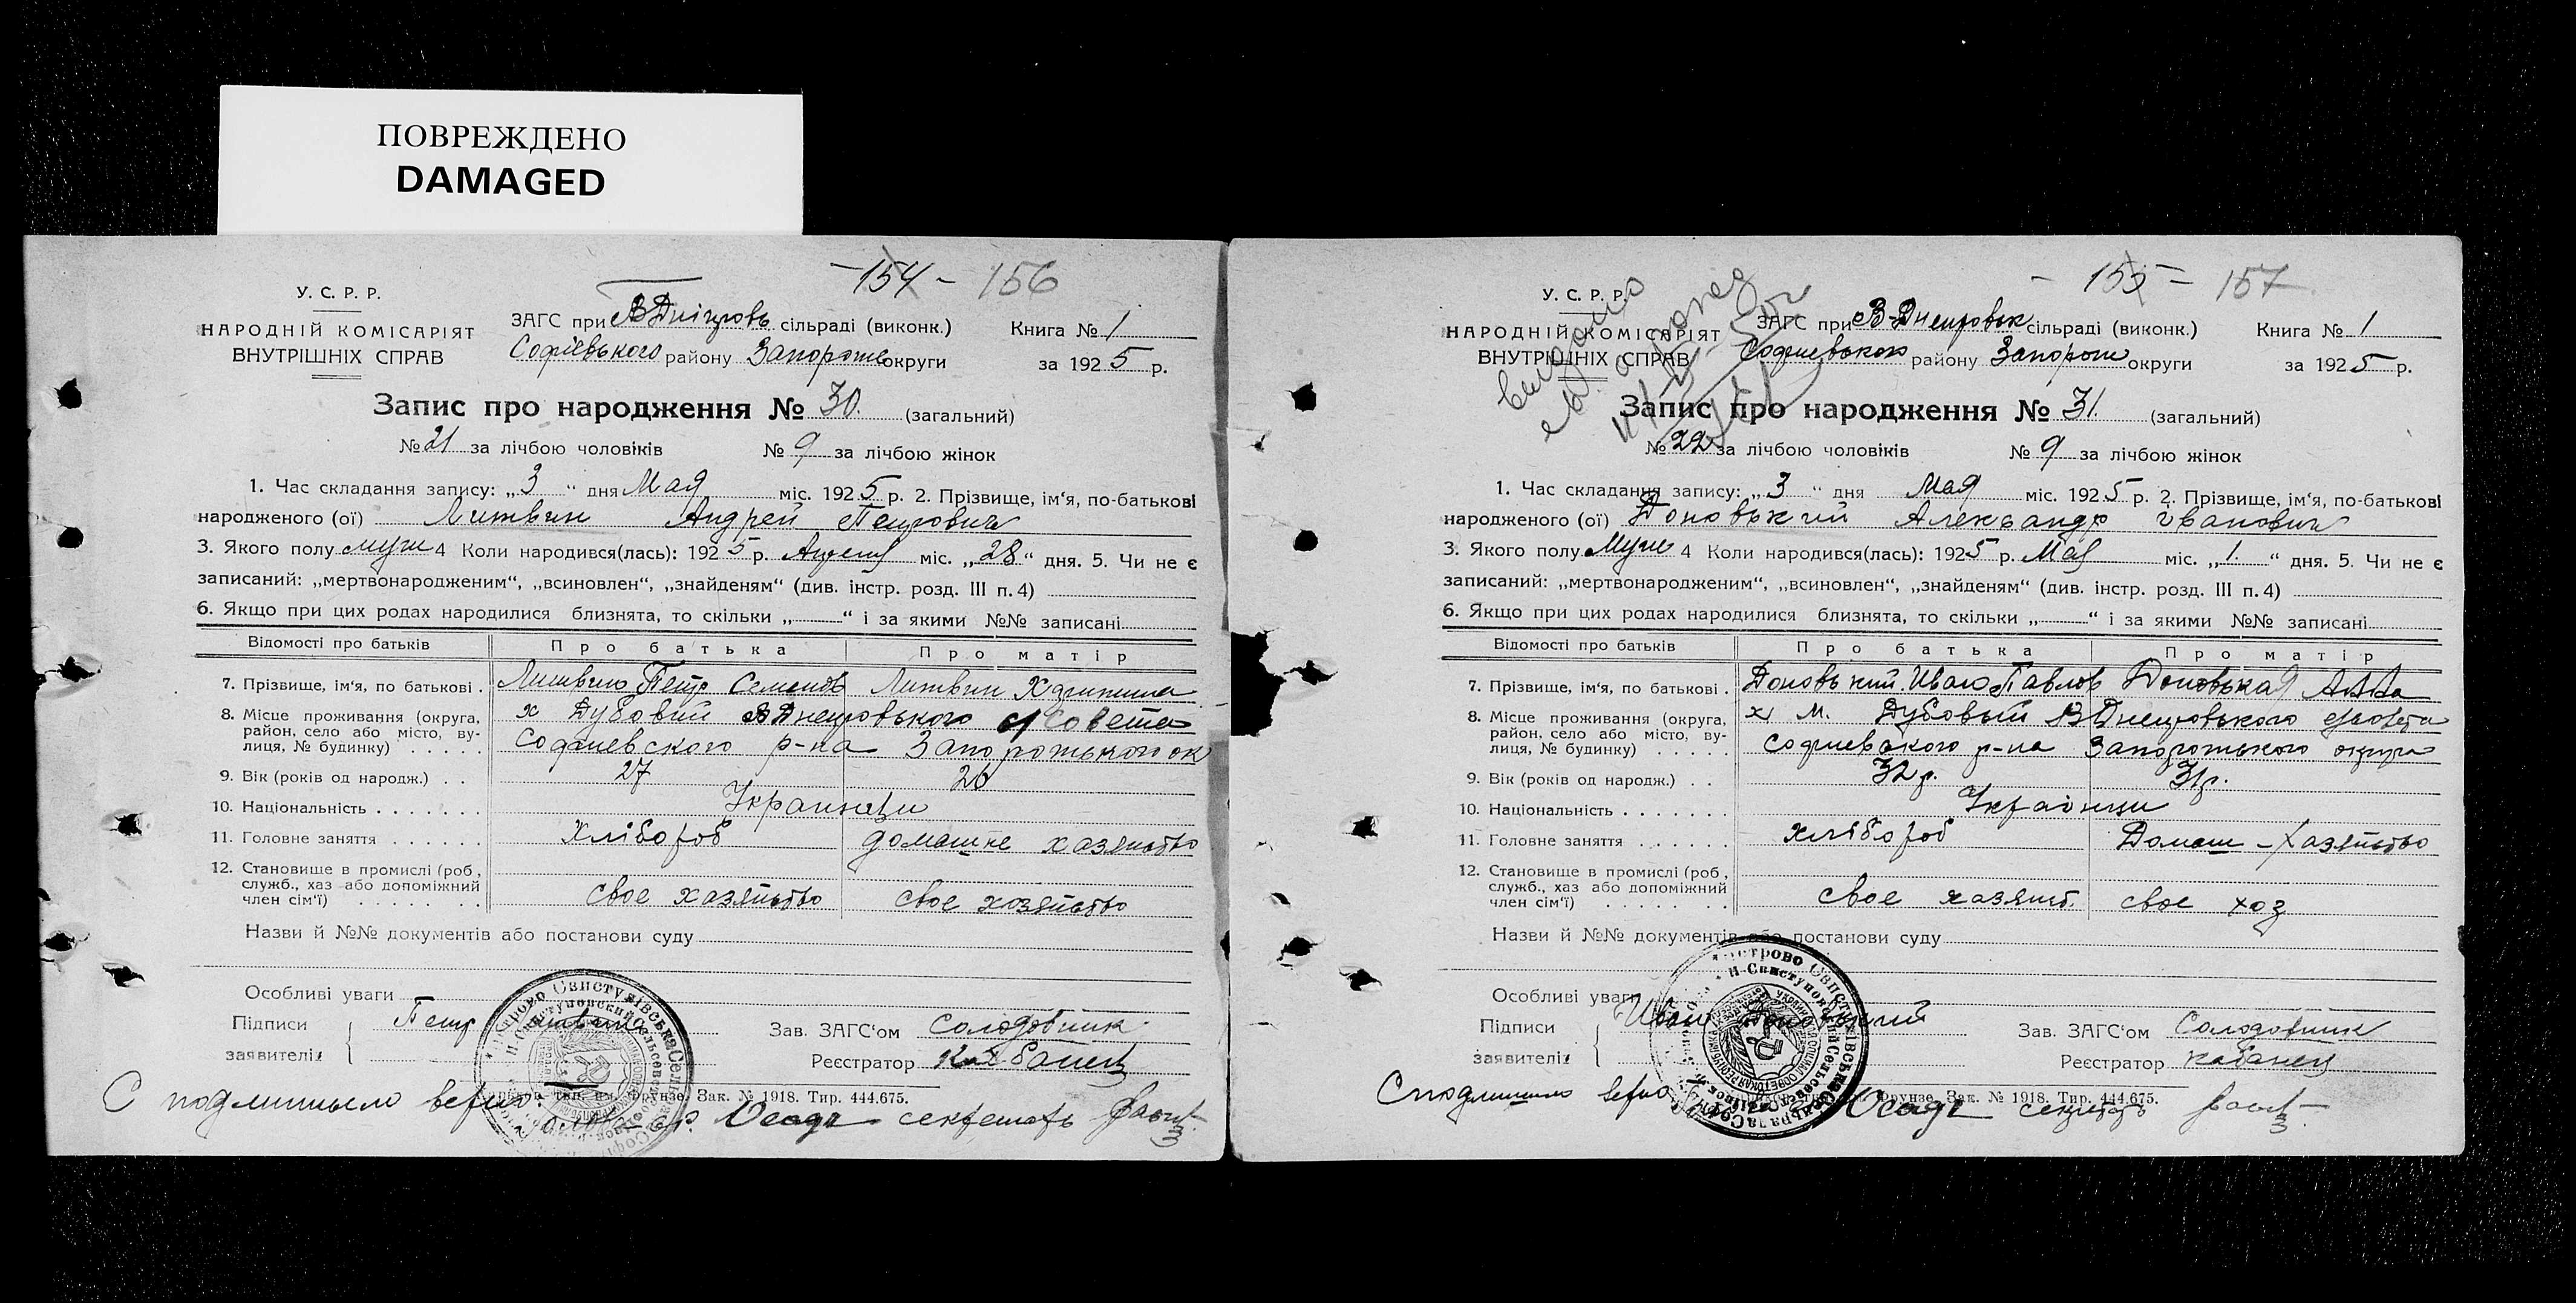 ПОВРЕЖДЕНО
DAMAGED
-154- 156
У. С. Р. Р.
НАРОДНІЙ КОМІСАРІЯТ
ВНУТРІШНІХ СПРАВ
ЗАГС при В Дніпровь сільраді (виконк.) Книга № 1
Софієвького району Запорож округи за 1925 р.
Запис про народження № 30. (загальний)
№ 21 за лічбою чоловіків № 9 за лічбою жінок
1. Час складання запису: „3“ дня Мая міс. 1925 р. 2. Прізвище, ім‘я, по-батькові
народженого (ої) Литвин Андрей Петрович
3. Якого полу муж 4 Коли народився(лась): 1925 р. Апреля міс. „28“ дня. 5. Чи не є
записаний: „мертвонародженим“, „всиновлен“, „знайденям“ (див. інстр. розд. III п. 4)
6. Якщо при цих родах народилися близнята, то скільки „ “ і за якими №№ записані
Відомості про батьків Про батька Про матір
7. Прізвище, ім‘я, по батькові . Литвин Петр Семенов Литвин Харитина
8. Місце проживання (округа, х Дубовий В Днепровького с/совета
район, село або місто, ву- Софиевского р-на Запорожького ок
лиця, № будинку) . . . . .
9. Вік (років од народж.) . . 27 26
10. Національність . . . . . . . Украинци
11. Головне заняття . . . . . . хлібороб домашне хазяйство
12. Становище в промислі (роб,
служб., хаз або допоміжний
член сім‘ї) . . . . . . . свое хазяйство свое хозяйство
Назви й №№ документів або постанови суду
Особливі уваги
Підписи
заявителів
Петр Литвин
Зав. ЗАГС‘ом Солодовник
Реєстратор Кабанец
Фрунзе. Зак. № 1918. Тир. 444.675.
С подлинным верно:
секретарь
- 155 - 157
У. С. Р. Р.
НАРОДНІЙ КОМІСАРІЯТ
ВНУТРІШНІХ СПРАВ
ЗАГС при В-Днепровьк сільраді (виконк.) Книга № 1
Софиевького району Запорож округи за 1925 р.
Запис про народження № 31. (загальний)
№ 22 за лічбою чоловіків № 9 за лічбою жінок
1. Час складання запису: „3“ дня Мая міс. 1925 р. 2. Прізвище, ім‘я, по-батькові
народженого (ої) Доновький Александр Іванович
3. Якого полу Муж 4 Коли народився(лась): 1925 р. Мая міс. „1.“ дня. 5. Чи не є
записаний: „мертвонародженим“, „всиновлен“, „знайденям“ (див. інстр. розд. III п. 4)
6. Якщо при цих родах народилися близнята, то скільки „ “ і за якими №№ записані
Відомості про батьків Про батька Про матір
7. Прізвище, ім‘я, по батькові . Доновький Иван Павлов Доновькая Анна
8. Місце проживання (округа, х М. Дубовый В Днепровького с/совета
район, село або місто, ву- Софиевского р-на Запорожького округи
лиця, № будинку) . . . . .
9. Вік (років од народж.) . . 32 р. 31 р.
10. Національність . . . . . . . Українци
11. Головне заняття . . . . . . хлібороб Домаш-хазяйство
12. Становище в промислі (роб,
служб., хаз або допоміжний
член сім‘ї) . . . . . . . свое хазяйст. свое хоз
Назви й №№ документів або постанови суду
Особливі уваги
Підписи
заявителів
Иван Доновький
Зав. ЗАГС‘ом Солодовник
Реєстратор Кабанец
Фрунзе. Зак. № 1918. Тир. 444.675.
С подлинным верно
секретарь